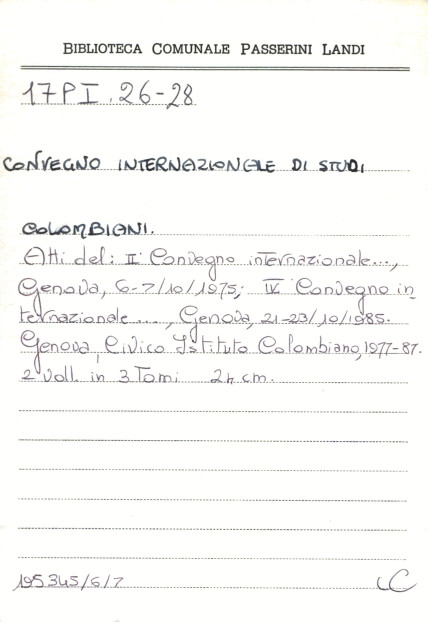 BIBLIOTECA COMUNALE PASSERINI LANDI
17 P I. 26-28
CONVEGNO INTERNAZIONALE DI STUDI
COLOMBIANI.
Atti del: II Convegno internazionale...,
Genova, 6-7/10/1975; IV Convegno in_
ternazionale ..., Genova, 21-23/10/1985.
Genova, Civico Istituto Colombiano, 1977-87.
2 voll. in 3 Tomi 24 cm.
195345/6/7
LC